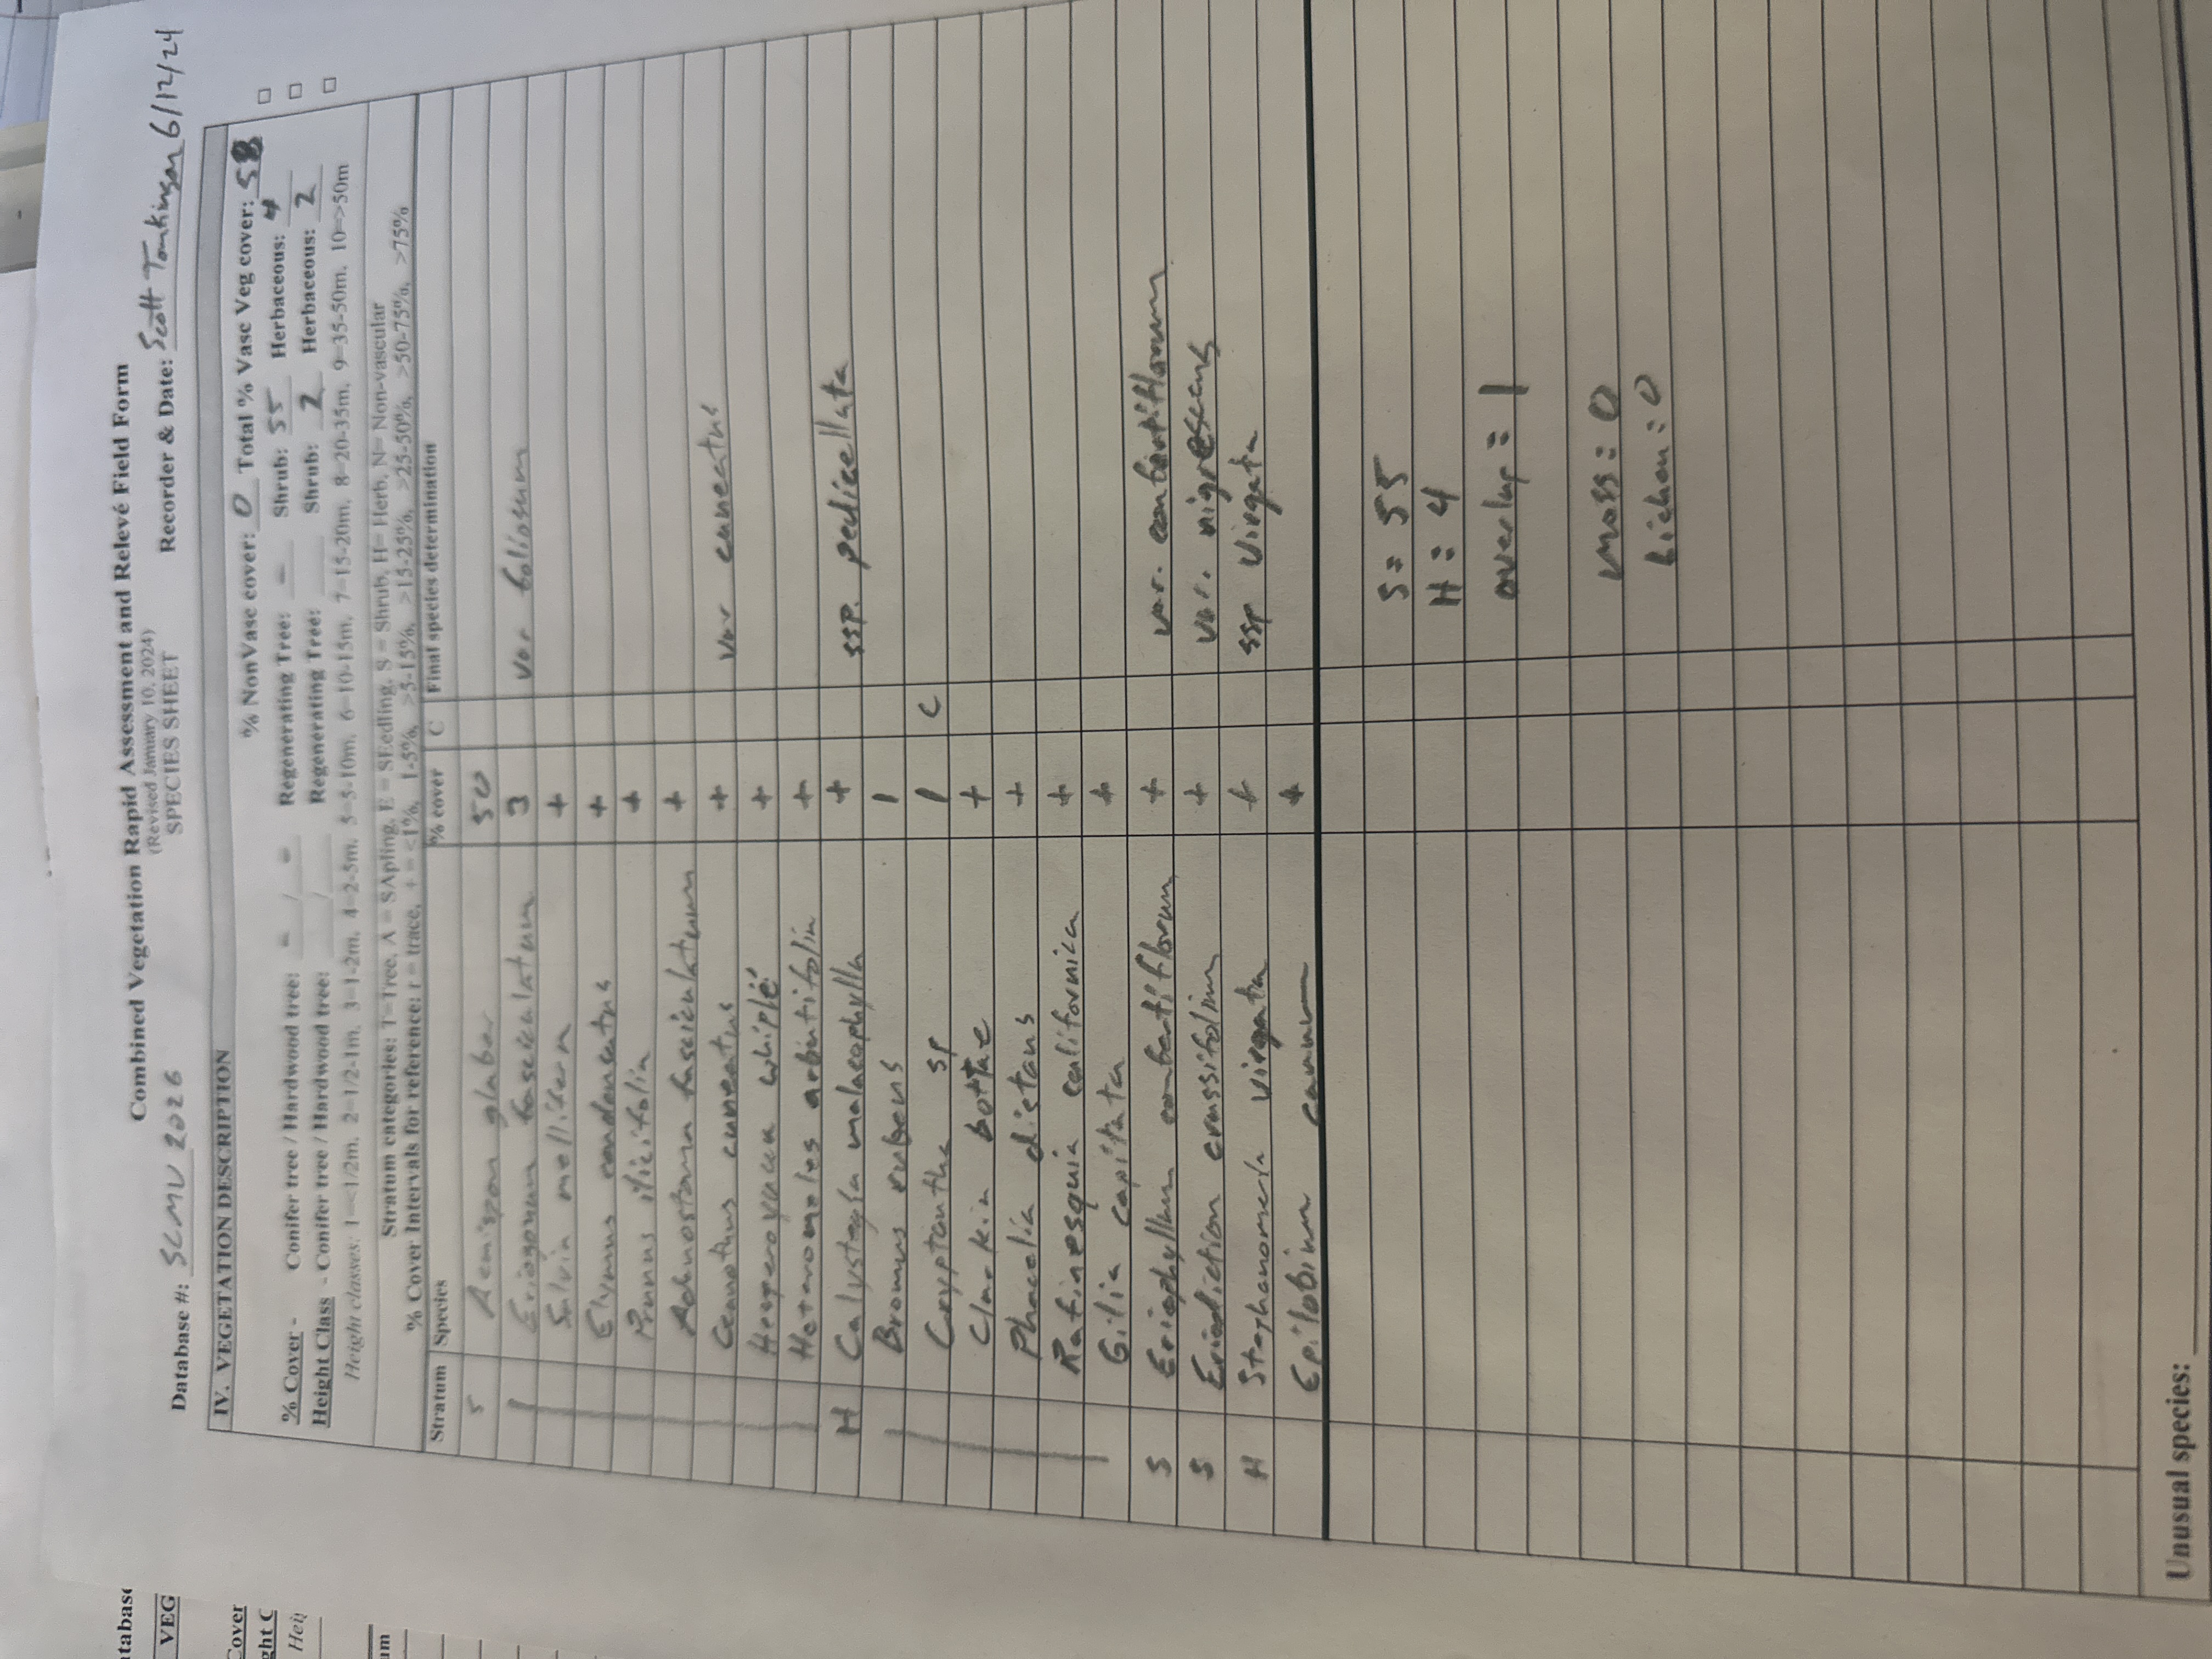 Combined Vegetation Rapid Assessment and Relevé Field Form
(Revised January 10, 2024)
SPECIES SHEET
Database #: SCMU 2026 Recorder & Date: Scott Tomkinson 6/12/24
IV. VEGETATION DESCRIPTION
% NonVasc cover: 0 Total % Vasc Veg cover: 58
% Cover - Conifer tree / Hardwood tree: - / - Regenerating Tree: - Shrub: 55 Herbaceous: 4
Height Class - Conifer tree / Hardwood tree: / Regenerating Tree: Shrub: 2 Herbaceous: 2
Height classes: 1=<1/2m, 2=1/2-1m, 3=1-2m, 4=2-5m, 5=5-10m, 6=10-15m, 7=15-20m, 8=20-35m, 9=35-50m, 10=>50m
Stratum categories: T=Tree, A = SApling, E = SEedling, S = Shrub, H= Herb, N= Non-vascular
% Cover Intervals for reference: r = trace, + = <1%, 1-5%, >5-15%, >15-25%, >25-50%, >50-75%, >75%
Stratum Species % cover C Final species determination
S Acmispon glaber 50
Eriogonum fasciculatum 3 var foliosum
Salvia mellifera +
Elymus condensatus +
Prunus ilicifolia +
Adenostoma fasciculatum +
Ceanothus cuneatus + var cuneatus
Hesperoyucca whiplei +
Heteromeles arbutifolia +
H Calystegia malacophylla + ssp. pedicellata
Bromus rubens 1
Cryptantha sp 1 C
Clarkia bottae +
Phacelia distans +
Rafinesquia californica +
Gilia capitata +
S Eriophyllum confertiflorum + var. confertiflorum
S Eriodictyon crassifolium + var. nigrescens
H Stephanomeria virgata + ssp virgata
Epilobium canum +
S = 55
H = 4
overlap = 1
moss = 0
lichen = 0
Unusual species:
tabase
VEG
Cover
ght C
Heig
um